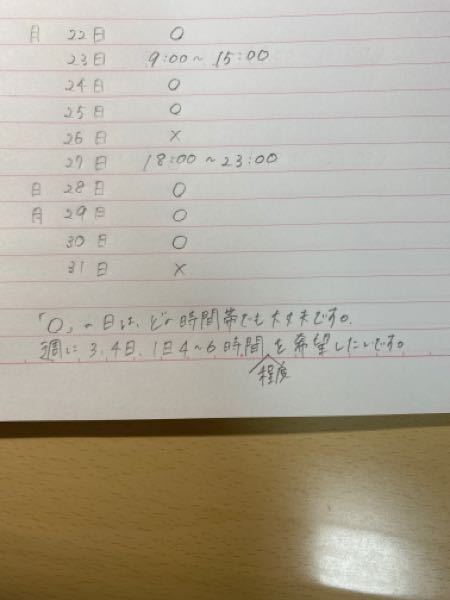 月 22日 ○
23日 9:00~15:00
24日 ○
25日 ○
26日 ×
27日 18:00~23:00
日 28日 ○
月 29日 ○
30日 ○
31日 ×
「○」の日は、どの時間帯でも大丈夫です。
週に3、4日、1日4~6時間程度を希望したいです。